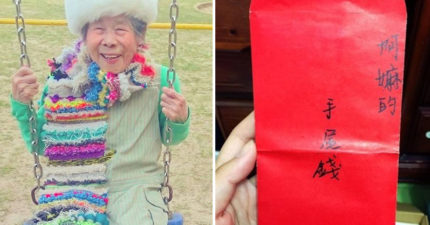 阿嬤的
手尾錢